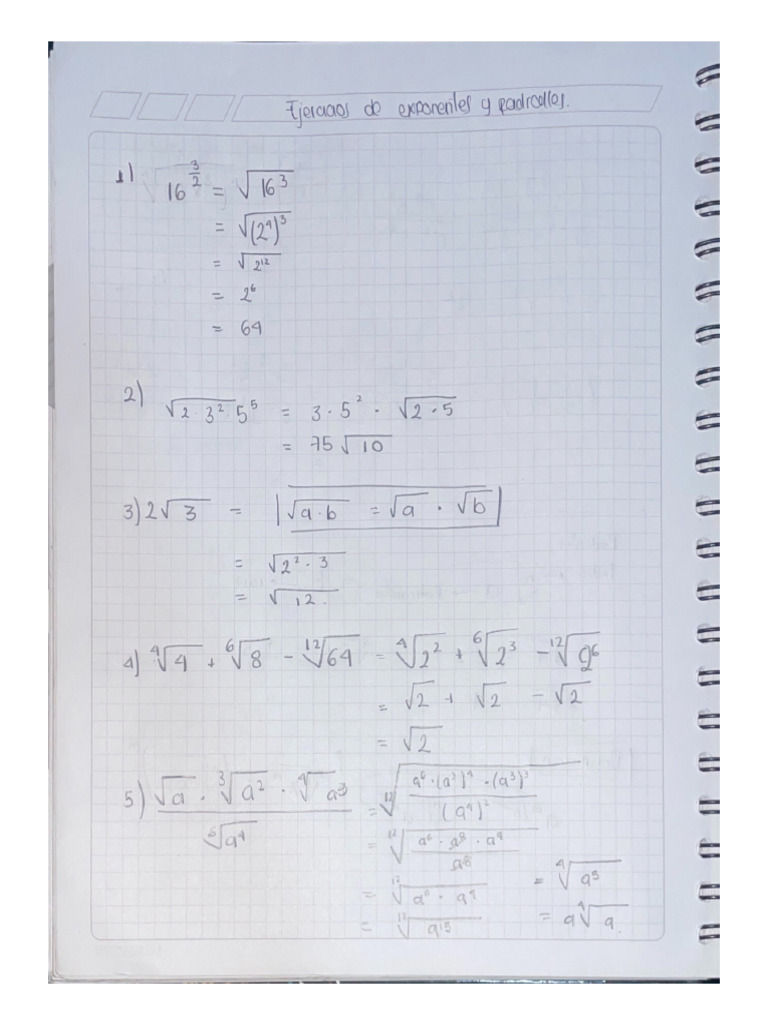 Ejercicios de exponentes y radicales.
1) 16^(3/2) = √(16^3)
= √((2^4)^3)
= √(2^12)
= 2^6
= 64
2) √(2 · 3^2 5^5) = 3 · 5^2 · √(2 · 5)
= 75 √10
3) 2√3 = |√(a · b) = √a · √b|
= √(2^2 · 3)
= √12.
4) ⁴√4 + ⁶√8 − ¹²√64 = ⁴√(2^2) + ⁶√(2^3) − ¹²√(2^6)
= √2 + √2 − √2
= √2
5) (√a · ³√(a^2) · ⁴√(a^3)) / ⁶√(a^4) = ¹²√((a^6 · (a^2)^4 · (a^3)^3) / (a^4)^2)
= ¹²√((a^6 · a^8 · a^9) / a^8)
= ¹²√(a^6 · a^9)
= ¹²√(a^15)
= ⁴√(a^5)
= a ⁴√a.